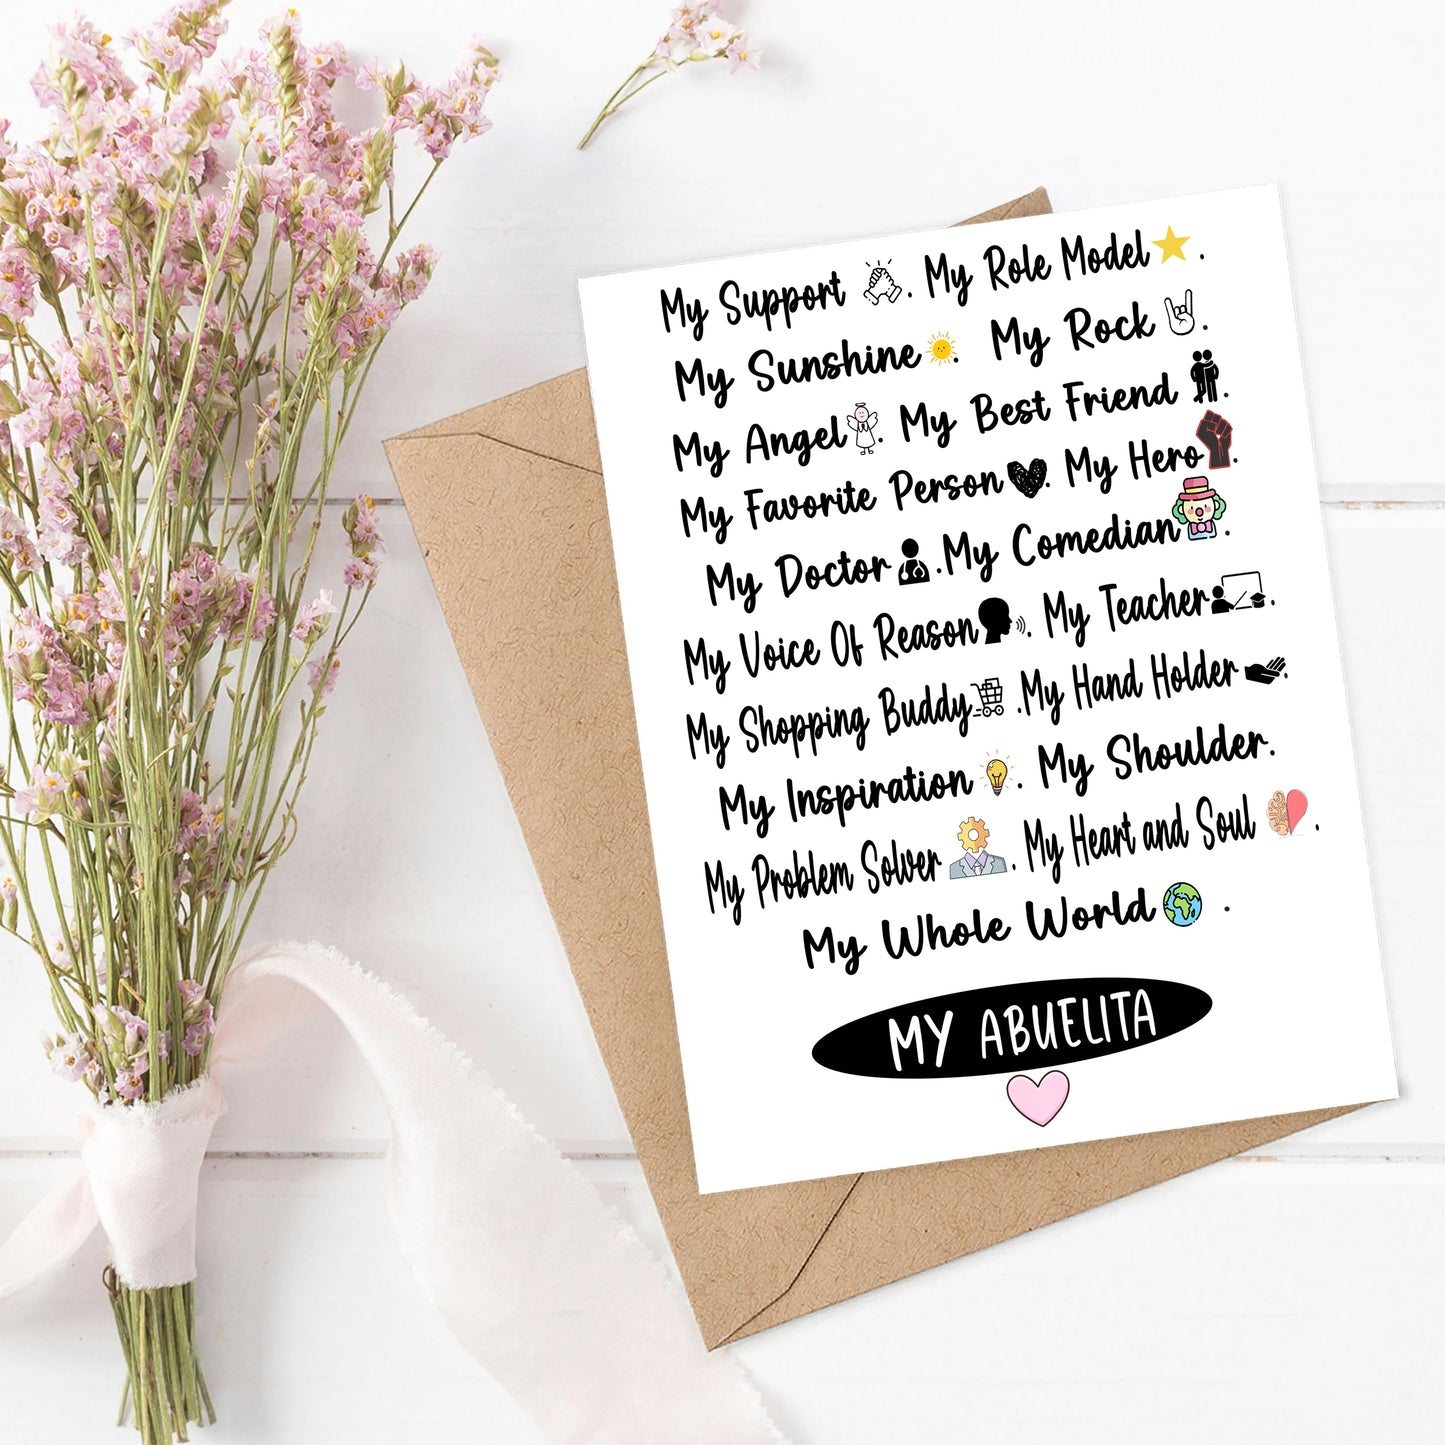 My Support. My Role Model.
My Sunshine. My Rock.
My Angel. My Best Friend.
My Favorite Person. My Hero.
My Doctor.My Comedian.
My Voice Of Reason. My Teacher.
My Shopping Buddy.My Hand Holder.
My Inspiration. My Shoulder.
My Problem Solver. My Heart and Soul.
My Whole World.
MY ABUELITA